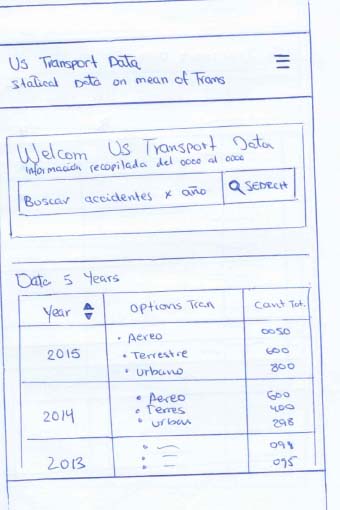 Us Transport Data
Statical Data on mean of Trans
Welcom Us Transport Data
Información recopilada del 0000 al 0000
Buscar accidentes x año
SEDRCH
Data 5 Years
Year
options Tran
Cant Tot.
2015
• Aereo
0050
• Terrestre
600
• urbano
800
2014
• Aereo
600
• Terres
400
• urban
298
2013
098
095